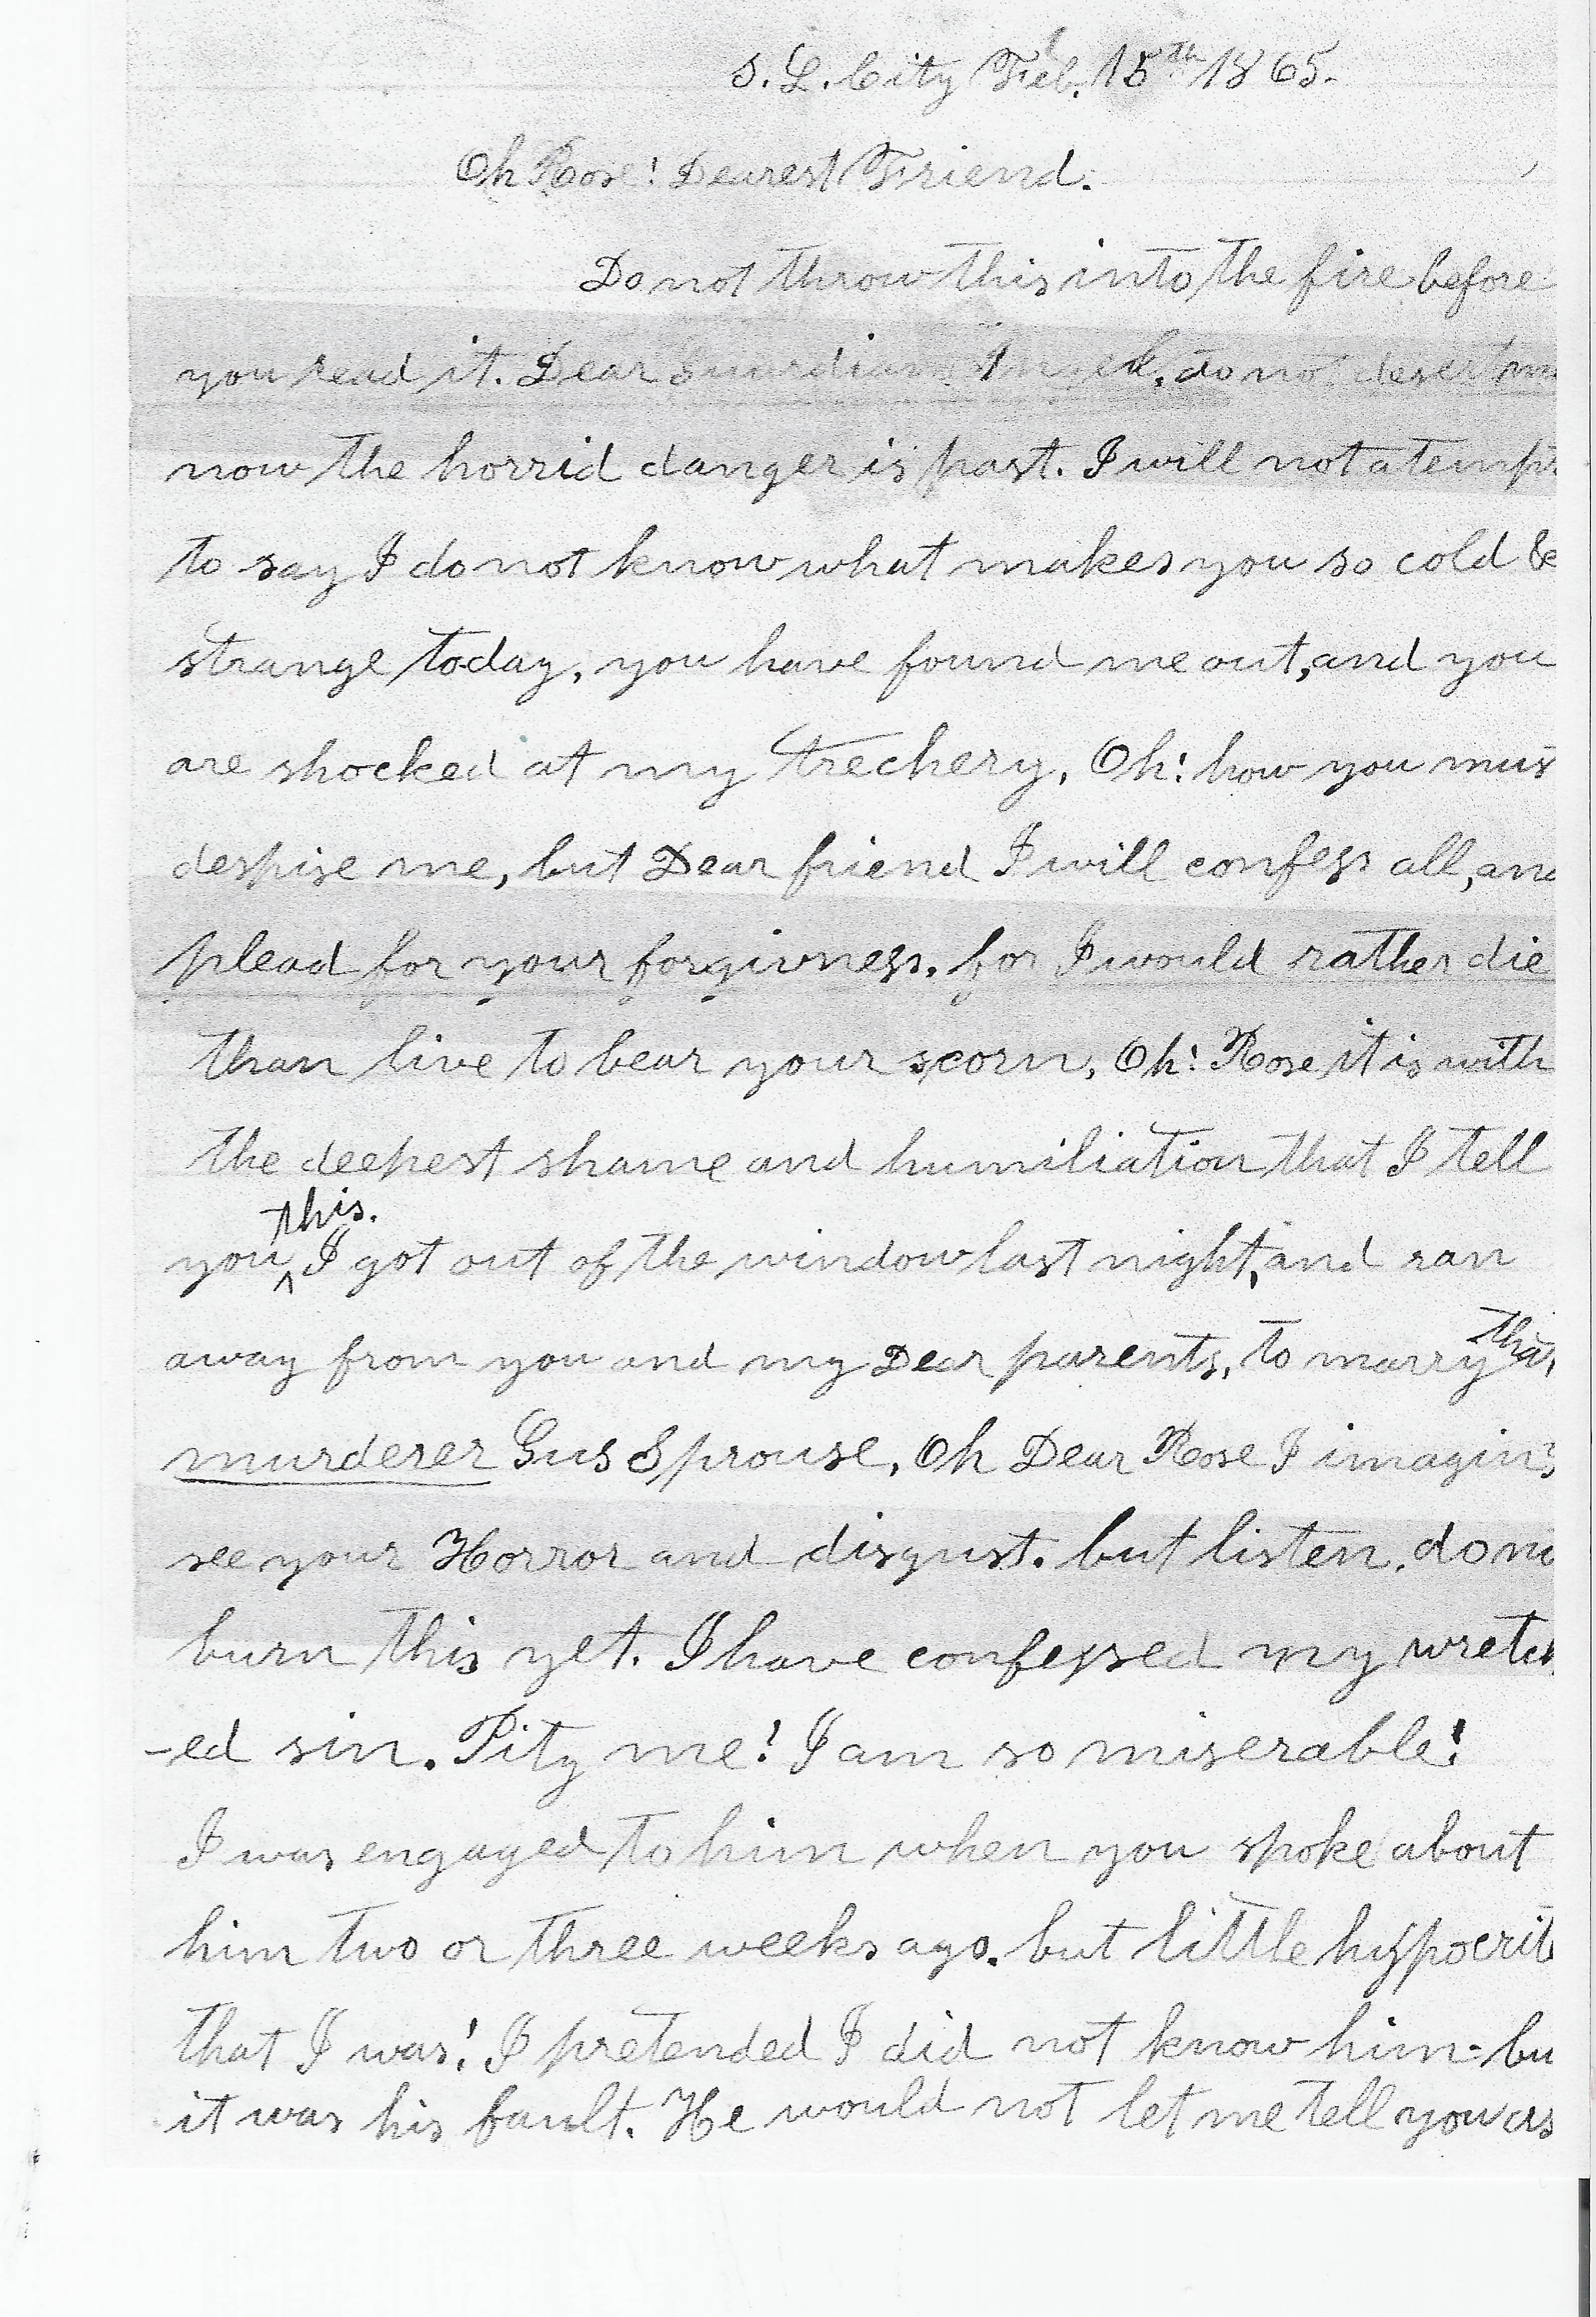 S. L. City Feb. 15th 1865.
Oh Rose! Dearest Friend.
Do not throw this into the fire before
you read it. Dear Guardian Angel, do not desert me
now the horrid danger is past. I will not atempt
to say I do not know what makes you so cold &
strange today, you have found me out, and you
are shocked at my trechery, Oh! how you mus
despise me, but Dear friend I will confess all, and
plead for your forgivness. for I would rather die
than live to bear your scorn, Oh! Rose it is with
the deepest shame and humiliation that I tell
you this. I got out of the window last night, and ran
away from you and my Dear parents, to marry that
murderer Gus Sprouse, Oh Dear Rose I imagin
see your Horror and disgust. but listen, do no
burn this yet. I have confessed my wretch
-ed sin. Pity me! I am so miserable!
I was engaged to him when you spoke about
him two or three weeks ago. but little hypocrit
that I was! I pretended I did not know him- bu
it was his fault. He would not let me tell you as